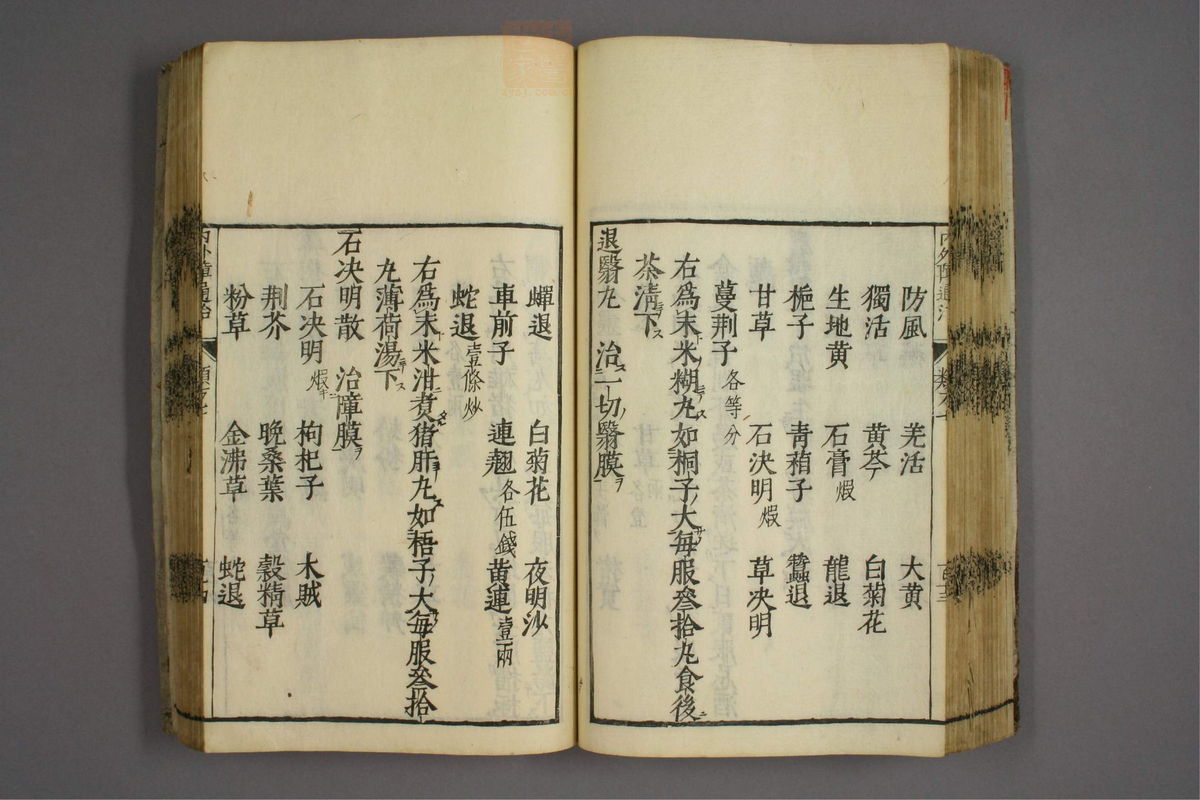 防風 羌活 大黃
獨活 黃芩 白菊花
生地黃 石膏煆 龍退
梔子 青葙子 蠶退
甘草 石決明煆 草決明
蔓荆子各等分
右爲末米糊丸如桐子大每服叄拾丸食後
茶淸下
退翳丸 治一切翳膜
蟬退 白菊花 夜明沙
車前子 連翹各伍錢 黃連壹兩
蛇退壹條炒
右爲末米泔煑猪肝丸如梧子大每服叄拾
丸薄荷湯下
石决明散 治障膜
石决明煆 枸杞子 木賊
荆芥 晚桑葉 穀精草
粉草 金沸草 蛇退
內外障通治